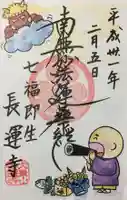 平成卅一年
二月五日
南無妙法蓮華経
七福即生
長運寺